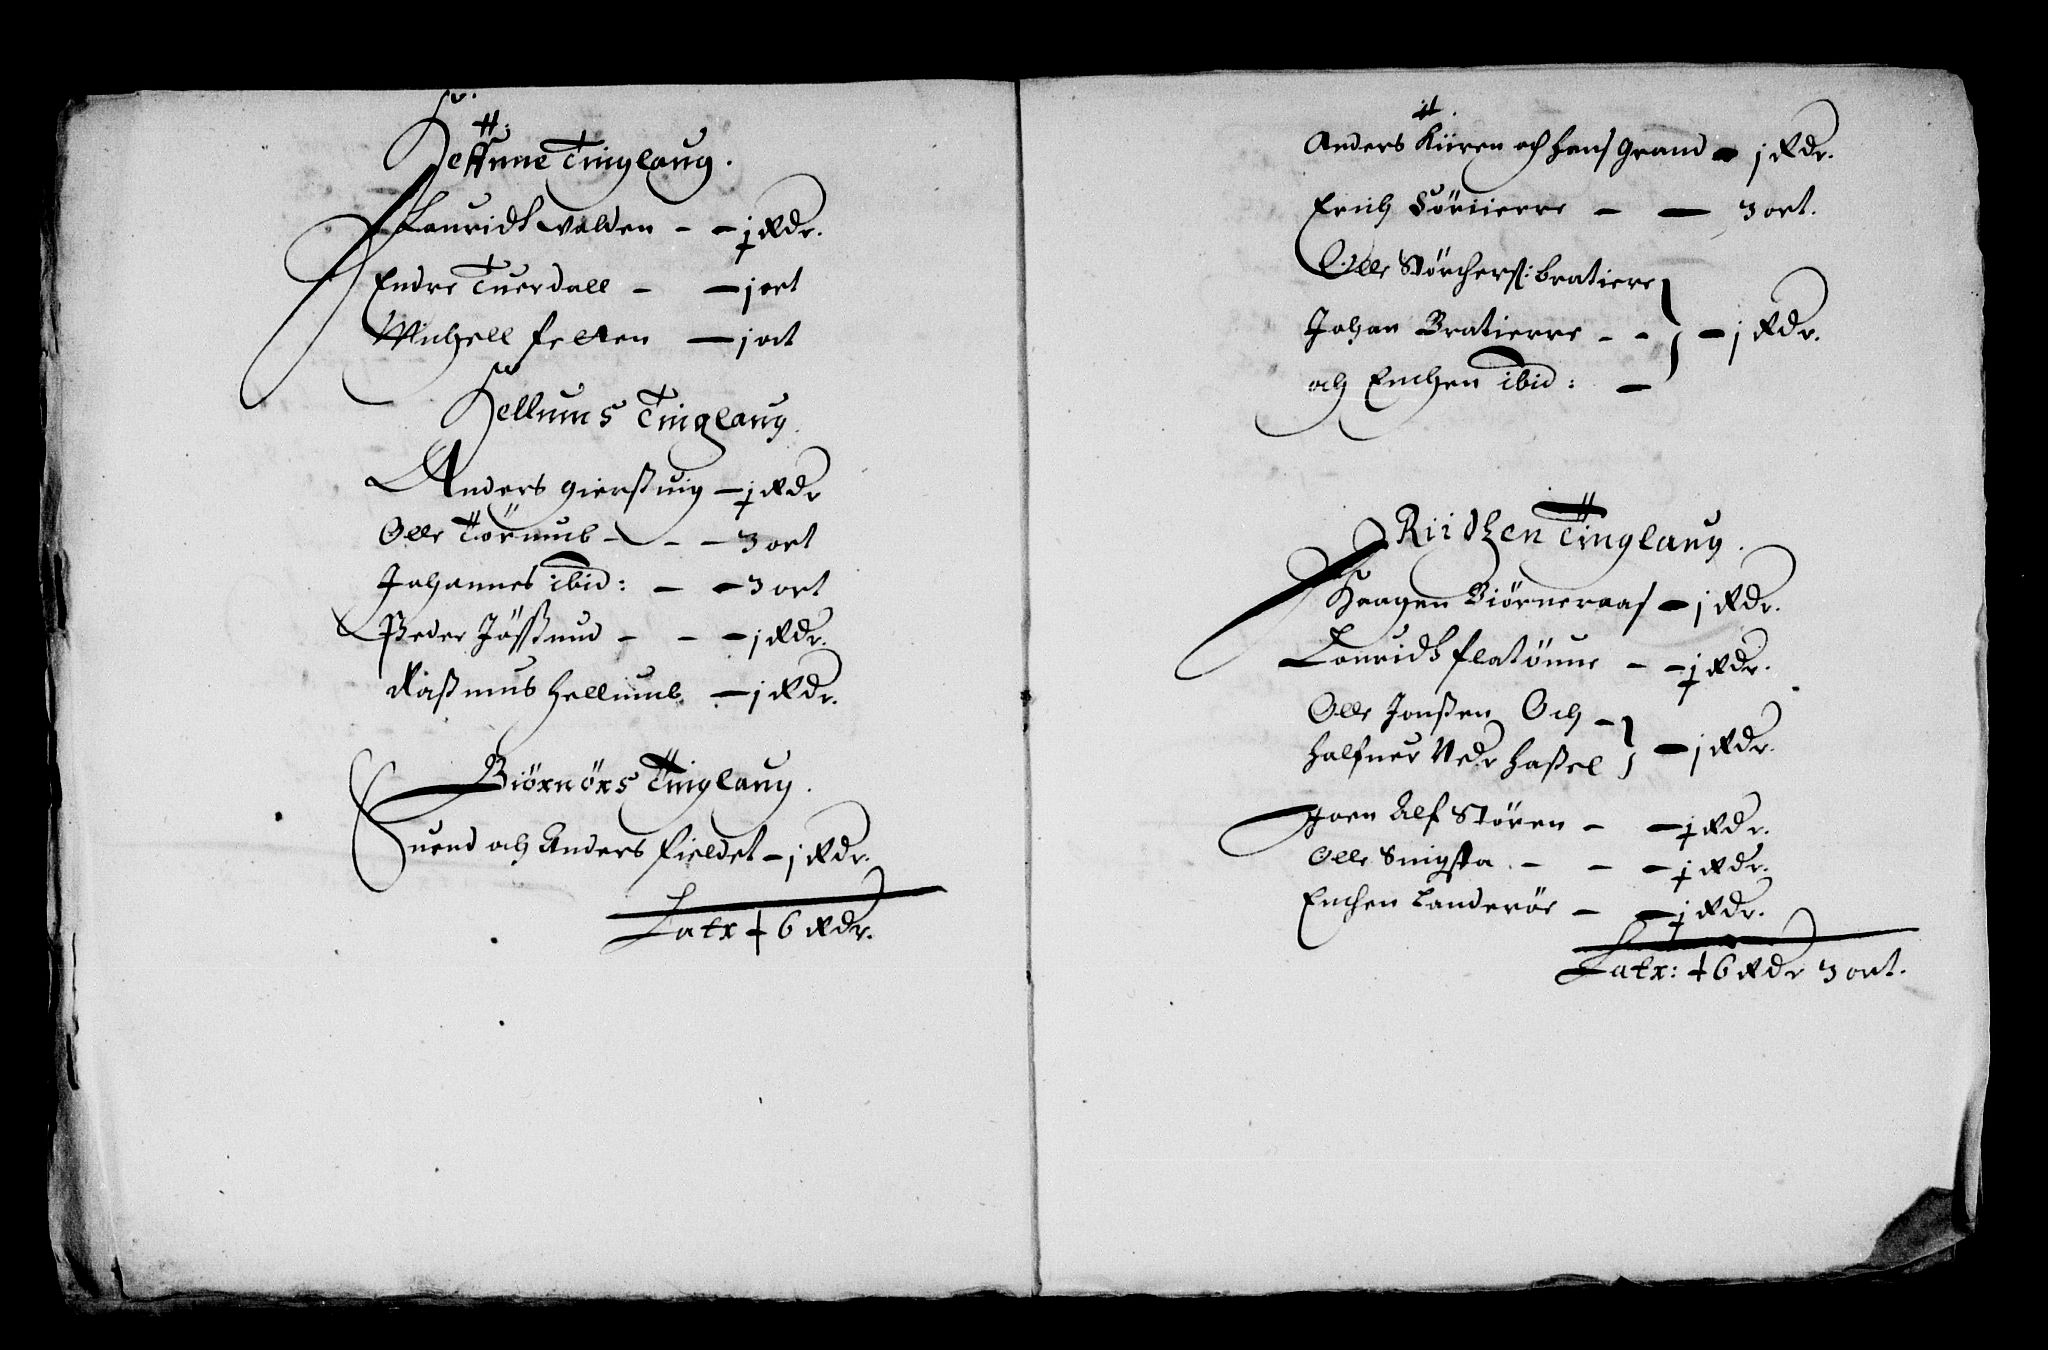 Heffnne Tinglaug.
Lauridtz Valden - - ɉ Rdr.
Endre Tuerdall - - j ort
Michell Felten - j ort
Hellums Tinglaug.
Anders gierßuig - ɉ Rdr
Olle Törmub - - - 3 ort
Johannes ibid: - - 3 ort
Peder Jößnud - - - j Rdr.
Raßmus Hellumb - j Rdr.
Biörnörs Tinglaug.
Suend och Anders Fieldet - j Rdr.
Latr ɉ6 Rdr.
Anders Kiiren och Hans Grand - j Rdr.
Erich Sörtierre - - 3 ort.
Olle Störchers: bratierre
Johan Bratierre - - } - j Rdr.
och Erichen ibid: -
Riidtzen Tinglaug.
Haagen Biörneraas - j Rdr.
Lauridtz Flatönne - - ɉ Rdr.
Olle Jonßen Och -
Halfuer Neder Haßel } - j Rdr.
Joen Alf Stören - - ɉ Rdr.
Olle Snigsta. - - - ɉ Rdr.
Erichen Landeröe - - ɉ Rdr.
Latr: ɉ6 Rdr 3 ort.